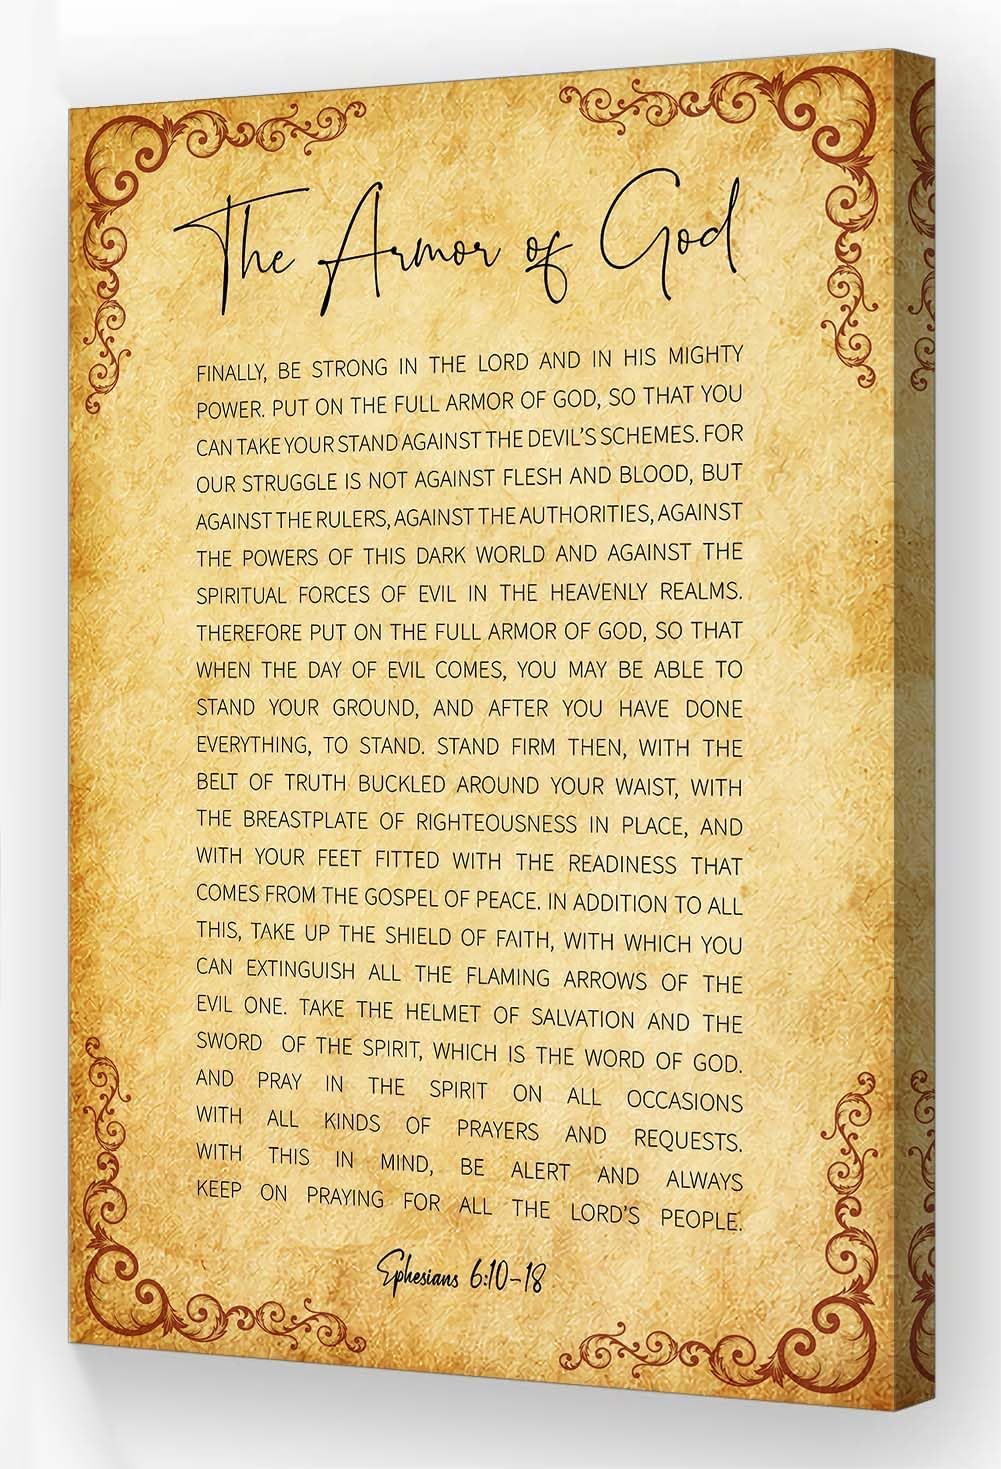 The Armor of God
FINALLY, BE STRONG IN THE LORD AND IN HIS MIGHTY
POWER. PUT ON THE FULL ARMOR OF GOD, SO THAT YOU
CAN TAKE YOUR STAND AGAINST THE DEVIL'S SCHEMES. FOR
OUR STRUGGLE IS NOT AGAINST FLESH AND BLOOD, BUT
AGAINST THE RULERS, AGAINST THE AUTHORITIES, AGAINST
THE POWERS OF THIS DARK WORLD AND AGAINST THE
SPIRITUAL FORCES OF EVIL IN THE HEAVENLY REALMS.
THEREFORE PUT ON THE FULL ARMOR OF GOD, SO THAT
WHEN THE DAY OF EVIL COMES, YOU MAY BE ABLE TO
STAND YOUR GROUND, AND AFTER YOU HAVE DONE
EVERYTHING, TO STAND. STAND FIRM THEN, WITH THE
BELT OF TRUTH BUCKLED AROUND YOUR WAIST, WITH
THE BREASTPLATE OF RIGHTEOUSNESS IN PLACE, AND
WITH YOUR FEET FITTED WITH THE READINESS THAT
COMES FROM THE GOSPEL OF PEACE. IN ADDITION TO ALL
THIS, TAKE UP THE SHIELD OF FAITH, WITH WHICH YOU
CAN EXTINGUISH ALL THE FLAMING ARROWS OF THE
EVIL ONE. TAKE THE HELMET OF SALVATION AND THE
SWORD OF THE SPIRIT, WHICH IS THE WORD OF GOD.
AND PRAY IN THE SPIRIT ON ALL OCCASIONS
WITH ALL KINDS OF PRAYERS AND REQUESTS.
WITH THIS IN MIND, BE ALERT AND ALWAYS
KEEP ON PRAYING FOR ALL THE LORD'S PEOPLE.
Ephesians 6:10-18